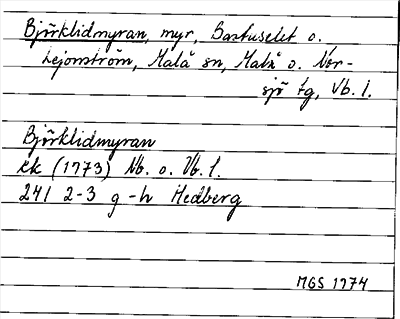 Björklidmyran, myr, Bastuselet o.
Lejonström, Malå sn, Malå o. Nor-
sjö tg, Vb. l.
Björklidmyran
Ek (1773) Nb. o. Vb. l.
241 2-3 g-h Hedberg
MGS 1974